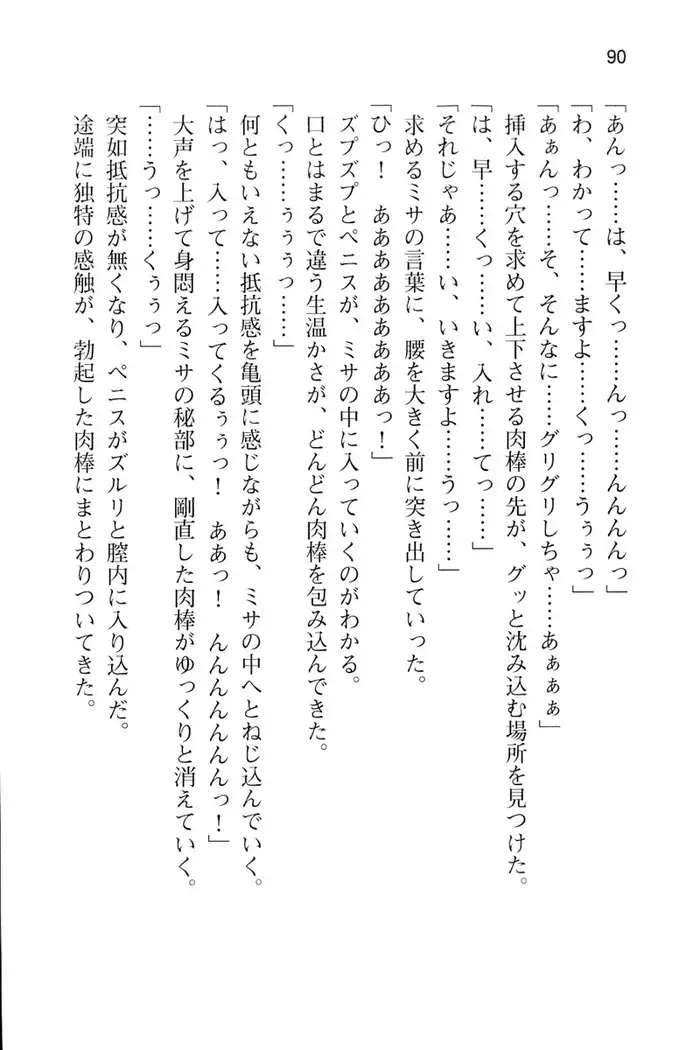 90
「あんっ……は、早くっ……んっ……んんんんっ」
「わ、わかって……ますよ……くっ……うぅぅっ」
「あぁんっ……そ、そんなに……グリグリしちゃ……あぁぁぁ」
挿入する穴を求めて上下させる肉棒の先が、グッと沈み込む場所を見つけた。
「は、早……くっ……い、入れ……てっ……」
「それじゃあ……い、いきますよ……うっ……」
求めるミサの言葉に、腰を大きく前に突き出していった。
「ひっ！　あああああああああっ！」
ズプズプとペニスが、ミサの中に入っていくのがわかる。
口とはまるで違う生温かさが、どんどん肉棒を包み込んできた。
「くっ……ぅぅぅっ……」
何ともいえない抵抗感を亀頭に感じながらも、ミサの中へとねじ込んでいく。
「はっ、入って……入ってくるぅぅっ！　ああっ！　んんんんんんんっ！」
大声を上げて身悶えるミサの秘部に、剛直した肉棒がゆっくりと消えていく。
「……うっ……くぅぅっ」
突如抵抗感が無くなり、ペニスがズルリと膣内に入り込んだ。
途端に独特の感触が、勃起した肉棒にまとわりついてきた。